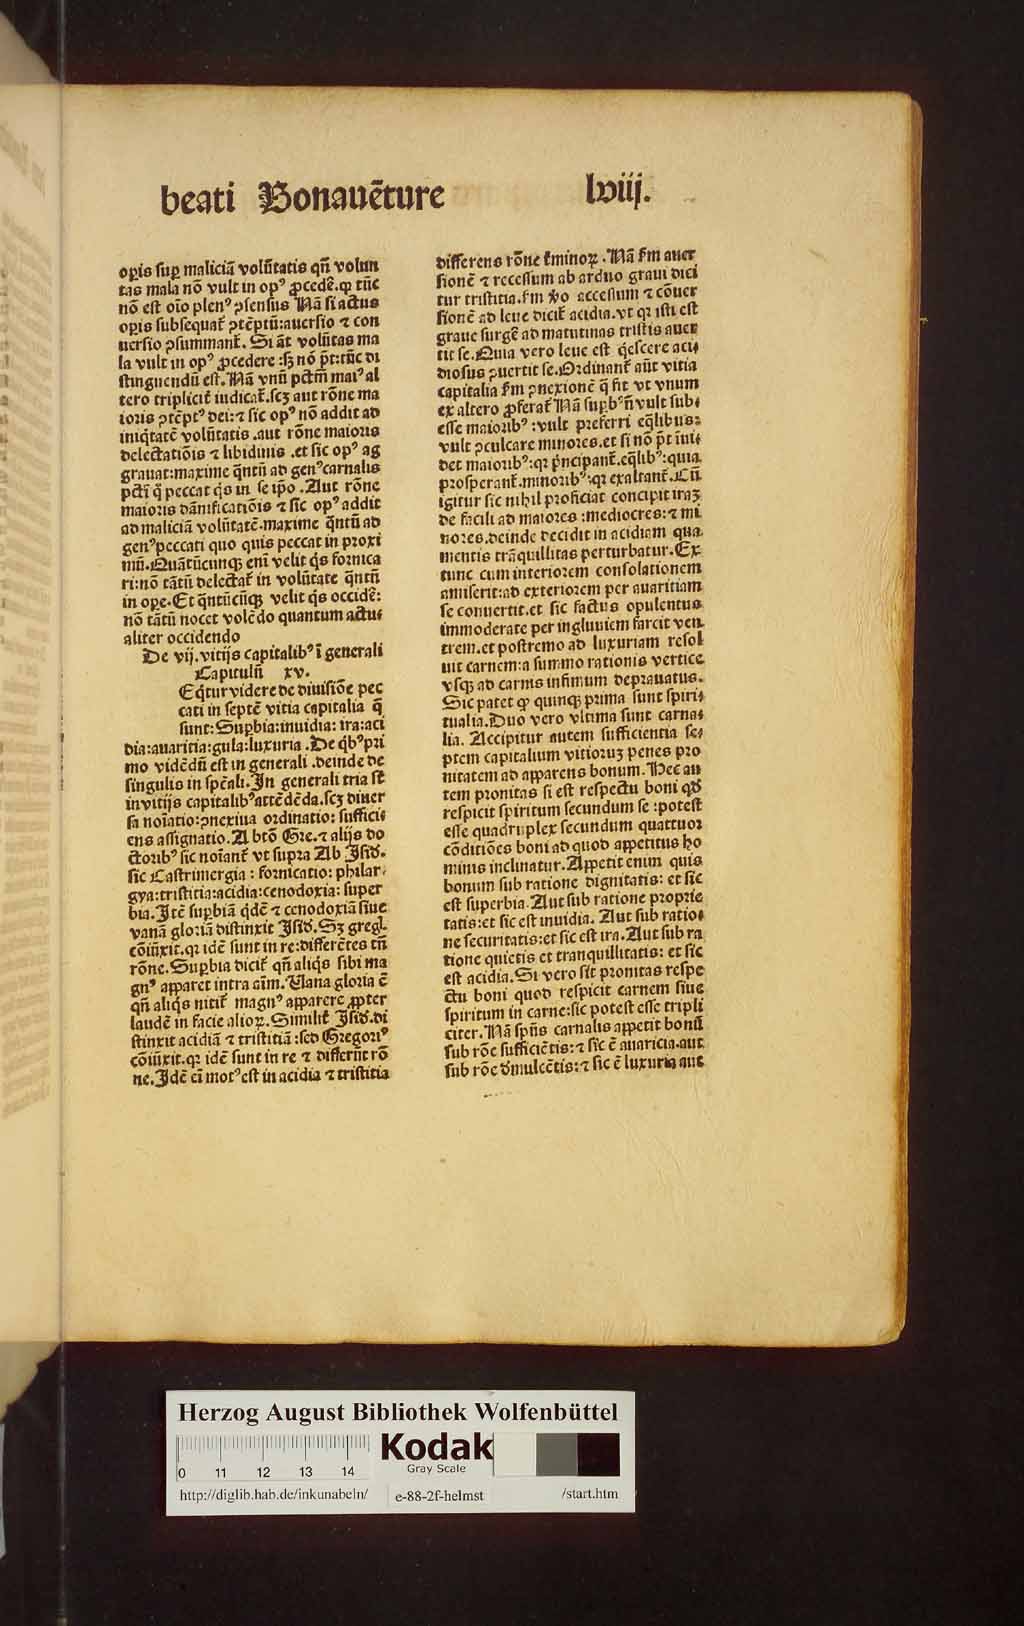 beati Bonauēture lviij.
oꝑis suꝑ maliciā volūtatis qñ volun
tas mala nō vult in opꝰ ꝓcedē.qꝛ tūc
nō est oīo plenꝰ ꝯsensus Nā si actus
oꝑis subsequat̃ ꝯtēptū:auersio ⁊ con
uersio ꝯsummant̃. Si āt volūtas ma
la vult in opꝰ ꝓcedere :sꝫ nō p̄t:tūc di
stinguendū est. Nā vnū pctm̄ maiꝰ al
tero tripliciť iudicat̃.scꝫ aut rōne ma
ioris ꝯtēptꝰ dei:⁊ sic opꝰ nō addit ad
iniq̄tatē volūtatis .aut rōne maioris
delectatiōis ⁊ libidinis .et sic opꝰ ag
grauat:maxime q̄ntū ad genꝰ carnalis
pctī q̄ peccat q̄s in se ip̄o .Aut rōne
maioris dānificatiōis ⁊ sic opꝰ addit
ad maliciā volūtatē.maxime q̄ntū ad
genꝰ peccati quo quis peccat in proxi
mū.Quātūcunqꝫ enī velit q̄s fornica
ri:nō tātū delectat̃ in volūtate q̄ntū
in oꝑe.Et q̄ntūcūqꝫ velit q̄s occidē:
nō tātū nocet volēdo quantum actu⸗
aliter occidendo
De vij.vitijs capitalibꝰ ī generali
Capitulū xv.
Eq̄tur videre de diuisiōe pec
cati in septē vitia capitalia q̄
sunt: Suꝑbia:inuidia: ira:aci
dia:auaritia:gula:luxuria .De q̄bꝰ pri
mo vidēdū est in generali .deinde de
singulis in spēali.In generali tria sūt
in vitijs capitalibꝰ attēdēda.scꝫ diuer
sa noīatio:ꝯnexiua ordinatio: sufficiē
ens assignatio.A btō Gre.⁊ alijs do
ctoribꝰ sic noīant̃ vt supra Ab Isid̄.
sic Castrimergia : fornicatio: philar⸗
gya:tristitia:acidia:cenodoxia: super
bia.Itē suꝑbiā q̄dē ⁊ cenodoxiā siue
vanā gloriā distinxit Isid̄. Sꝫ gregł.
cōiūxit.qꝛ idē sunt in re:differētes tñ
rōne.Suꝑbia dicit̃ qñ aliq̄s sibi ma
gnꝰ apparet intra aīm. Uana gloria ē
qñ aliq̄s nitit̃ magnꝰ apparere ꝓpter
laudē in facie alioꝝ. Similiť Isid̄.di
stinxit acidiā ⁊ tristitiā :sed Gregoriꝰ
cōiūxit.qꝛ idē sunt in re ⁊ differūt rō
ne.Idē eī motꝰ est in acidia ⁊ tristitia
differens rōne ẜminoꝝ .Nā ẜm auer
sionē ⁊ recessum ab arduo graui dici
tur tristitia.ẜm v̄o accessum ⁊ cōuer
sionē ad leue dicit̃ acidia.vt qꝛ isti est
graue surgē ad matutinas tristis auer
tit se.Quia vero leue est q̄escere aci⸗
diosus ꝯuertit se.Ordinant̃ aūt vitia
capitalia ẜm ꝯnexionē q̄ fit vt vnum
ex altero ꝓferat̃ Nā suꝑbꝰ ñ vult sub⸗
esse maioribꝰ :vult preferri eq̄libus:
vult ꝯculcare minores.et si nō p̄t īui⸗
det maioribꝰ:qꝛ pͥncipant̃.eq̄libꝰ:quia
prosperant̃.minoribꝰ:qꝛ exaltant̃.Cū
igitur sic nihil proficiat concipit iraꝫ
de facili ad maiores :mediocres:⁊ mi
nores.deinde decidit in acidiam qua
mentis trāquillitas perturbatur. Ex
tunc cum interiorem consolationem
amiserit:ad exteriorem per auaritiam
se conuertit.et sic factus opulentus
immoderate per ingluuiem farcit ven
trem.et postremo ad luxuriam resol
uit carnem:a summo rationis vertice
vsqꝫ ad carnis infimum deprauatus.
Sic patet ꝙ quinqꝫ prima sunt spiri⸗
tualia.Duo vero vltima sunt carna⸗
lia. Accipitur autem sufficientia se⸗
ptem capitalium vitioruꝫ penes pro
nitatem ad apparens bonum. Hec au
tem pronitas si est respectu boni qd̄
respicit spiritum secundum se :potest
esse quadruplex secundum quattuor
cōditiōes boni ad quod appetitus ho
minis inclinatur.Appetit enim quis
bonum sub ratione dignitatis: et sic
est superbia.Aut sub ratione proprie
tatis:et sic est inuidia. Aut sub ratio⸗
ne securitatis:et sic est ira.Aut sub ra
tione quietis et tranquillitatis: et sic
est acidia. Si vero sit pronitas respe
ctu boni quod respicit carnem siue
spiritum in carne:sic potest esse tripli
citer. Nā spūs carnalis appetit bonū
sub rōe sufficiētis:⁊ sic ē auaricia.aut
sub rōe d̄mulcētis:⁊ sic ē luxuria aut
Herzog August Bibliothek Wolfenbüttel
0 11 12 13 14
Kodak
Gray Scale
http://diglib.hab.de/inkunabeln/ e-88-2f-helmst /start.htm